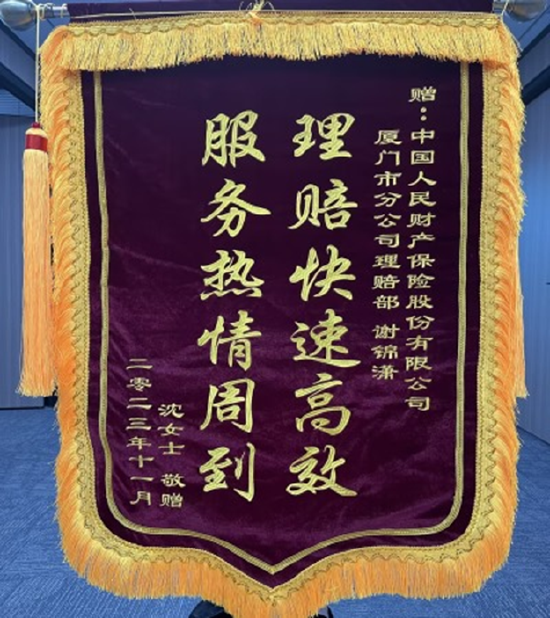 赠：中国人民财产保险股份有限公司
厦门市分公司理赔部 谢锦潇
理赔快速高效
服务热情周到
沈女士 敬赠
二零二三年十一月